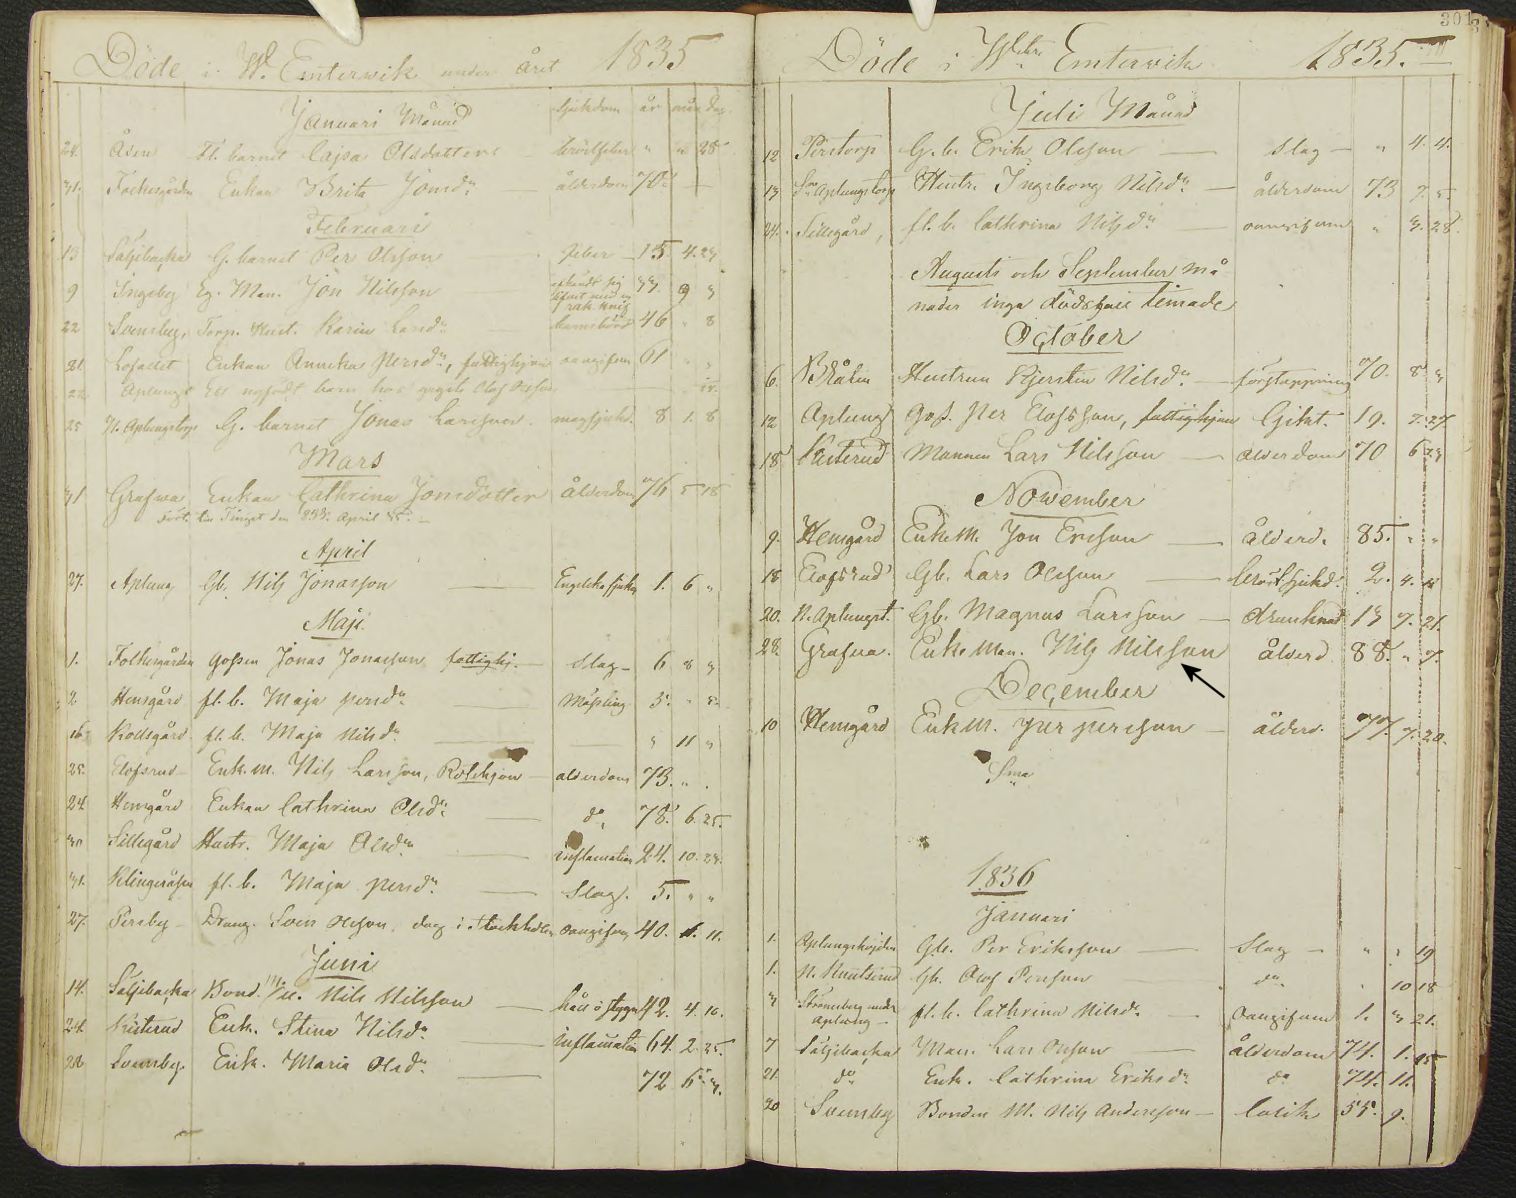 Döde i W. Emterwik under Året 1835
Januari Månad Sjukdom år mån dag
24. Åsen Fl. barnet Cajsa Olsdotter " 28
31. Enkan Brita Jonsd:r ålderdom 70. –
Februari
13 Säljebacka G. barnet Per Olsson feber 15. 4. 23
9 Ingeby Eg. Man. Jon Nilsson 33. 9 3
rak knif
22 Svensby, Torp. Hust. Karin barnsbörd 46 " 8
21 Enkan Annika Persd:r, fattighjon oangifven 61 " "
22 Aplungs Ett nyfödt barn hos Olof
25 N. Aplungstorp G. barnet Jonas Larsson magsjukd. 8 1. 8
Mars
31 Grafva Enkan Cathrina Jonsdotter ålderdom 76 5 18
till Tinget den April
April
27. Aplung Gb. Nils Jonasson Engelska sjukan 1. 6 "
Maji
1. Folkesgården gossen Jonas Jonasson, fattighj. – slag – 6 8 3
2 Hemgård fl. b. Maja persd:r Mässling 3. "
16 Kollsgård fl. b. Maja Nilsd:r " 11 "
25. Elofsrud – Enk. m. Nils Larsson, Rotehjon – alderdom 73. "
24. Hemgård Enkan Cathrina Olsd:r d:o 78. 6. 25.
30 Sillegård Hustr. Maja Olsd:r inflamation 24. 10. 23.
31. Klingeråsen fl. b. Maja persd:r Slag. 5. " "
27. Persby – Dräng. Sven Olsson, dog i Stockholm oangifven 40. 1. 11.
Juni
14. Säljebacka Bond. Nils Nilsson håll o stygn 42. 4. 16.
24. Knüterud Enk. Stina Nilsd:r inflamation 64. 2. 25.
28 Svensby. Enk. Maria Olsd:r 72 6. 3.
301
Döde i W:stra Emterwik 1835.
Juli Månad
12 Perstorp G. b. Erik Olsson slag – " 4. 4.
13 S:ra Aplungstorp Hustr. Ingeborg Nilsd:r ålderdom 73 7. 5.
24. Sillegård, fl. b. Cathrina Nilsd:r oangifven " 3. 28.
Augusti och September må
nader inga dödsfall timade
October
6. Bråten Hustrun Kjerstin Nilsd:r förstoppning 70. 8 3
12 Aplung Goss. Per Elofsson, fattighjon Gikt. 19. 7. 27.
18 Knüterud Mannen Lars Nilsson ålderdom 70 6 23
November
9. Hemgård Enkem. Jon Ersson ålderd. 85. " "
18 Elofsrud Gb. Lars Olsson bröstsjukd. 2. 4. 18
20. N. Aplungst. Gb. Magnus Larsson drunknad 13 7. 21.
28. Grafva. Enke Man. Nils Nilsson ålderd 88. " 7.
December
10 Hemgård Enk. M. Per persson ålderd. 77. 7. 20.
S:ma
1836
Januari
1. Aplungshöjden Gb. Per Eriksson Slag – " " 19
1. N. Knutserud Gb. Olof Persson d:o " 10 18
3 Strömsberg under Aplung – fl. b. Cathrina Nilsd:r Oangifven 1. 3 21.
7 Säljebacka Man. Lars Ålderdom 74. 1. 25
21. d:o Enk. Cathrina Eriksd:r d:o 74. 11.
20 Svensby Bonden M. Nils Andersson – Colik 55. 9.